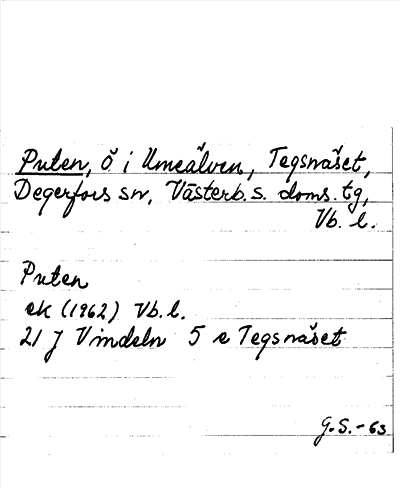 Puten, ö i Umeälven, Tegsnäset,
Degerfors sn, Västerb. s. doms. tg,
Vb. l.
Puten
ek (1962) Vb. l.
21 J Vindeln 5 e Tegsnäset
G.S.-63